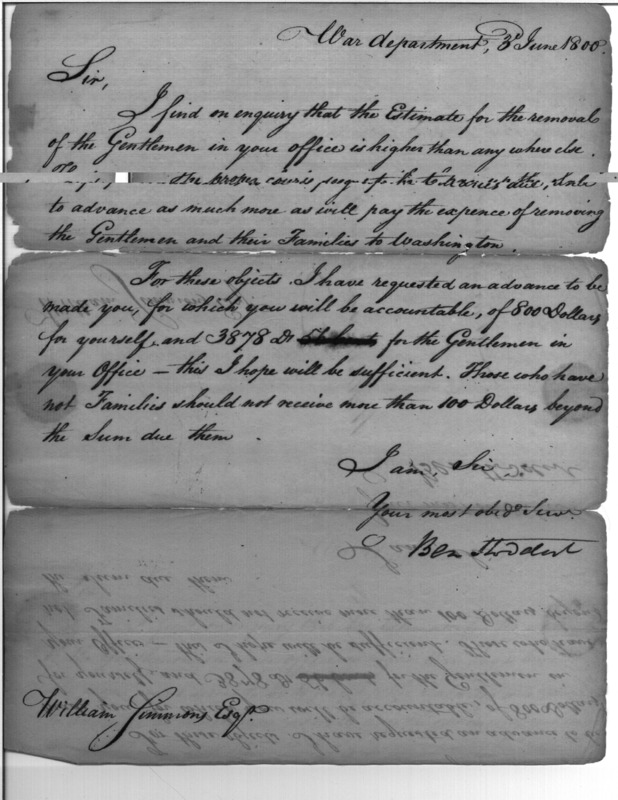 War department, 3d June 1800.
Sir,
I find on enquiry that the Estimate for the removal
of the Gentlemen in your office is higher than any where else.
to advance as much more as will pay the expence of removing
the Gentlemen and their Families to Washington.
For these objects I have requested an advance to be
made you, for which you will be accountable, of 800 Dollars
for yourself and 3878 Ds for the Gentlemen in
your Office – this I hope will be sufficient. Those who have
not Families should not receive more than 100 Dollars beyond
the Sum due them.
I am Sir
Your most obed Serv.
Ben Stoddert
William Simmons Esqr.